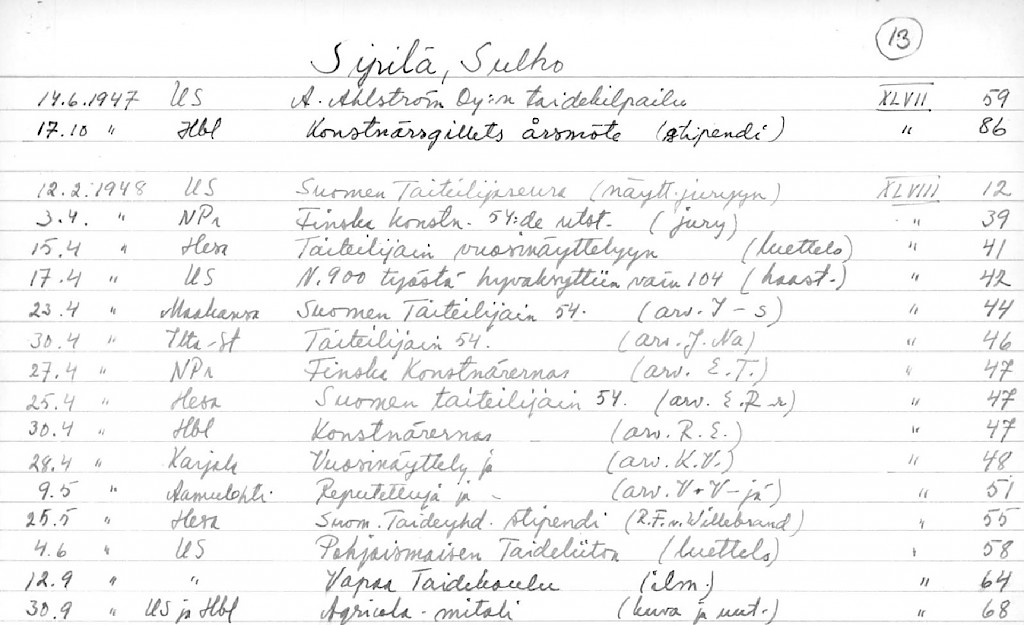 13
Sipilä, Sulho
14.6.1947 US A. Ahlström Oy:n taidekilpailu XLVII 59
17.10 " Hbl Konstnärsgillets årsmöte (stipendi) " 86
12.2.1948 US Suomen Taiteilijaseura (näytt.juryyn) XLVIII 12
3.4. " NPr Finska Konstn. 54:de utst. (jury) " 39
15.4 " Hesa Taiteilijain vuosinäyttelyyn (luettelo) " 41
17.4 " US N. 900 työstä hyväksyttiin vain 104 (haast.) " 42
23.4 " Maakansa Suomen Taiteilijain 54. (arv. Y-s) " 44
30.4 " Ilta-St Taiteilijain 54. (arv. J. Na) " 46
27.4 " NPr Finska Konstnärernas (arv. E.T.) " 47
25.4 " Hesa Suomen taiteilijain 54. (arv. E.R-r) " 47
30.4 " Hbl Konstnärernas - (arv. R.E.) " 47
28.4 " Karjala Vuosinäyttely ja (arv. K.V.) " 48
9.5 " Aamulehti Reputettuja ja - (arv. V+V-jä) " 51
25.5 " Hesa Suom. Taideyhd. stipendi (R.F.v.Willebrand) " 55
4.6 " US Pohjoismaisen Taideliiton (luettelo) " 58
12.9 " " Vapaa Taidekoulu (ilm.) " 64
30.9 " US ja Hbl Agricola-mitali (kuva ja uut.) " 68